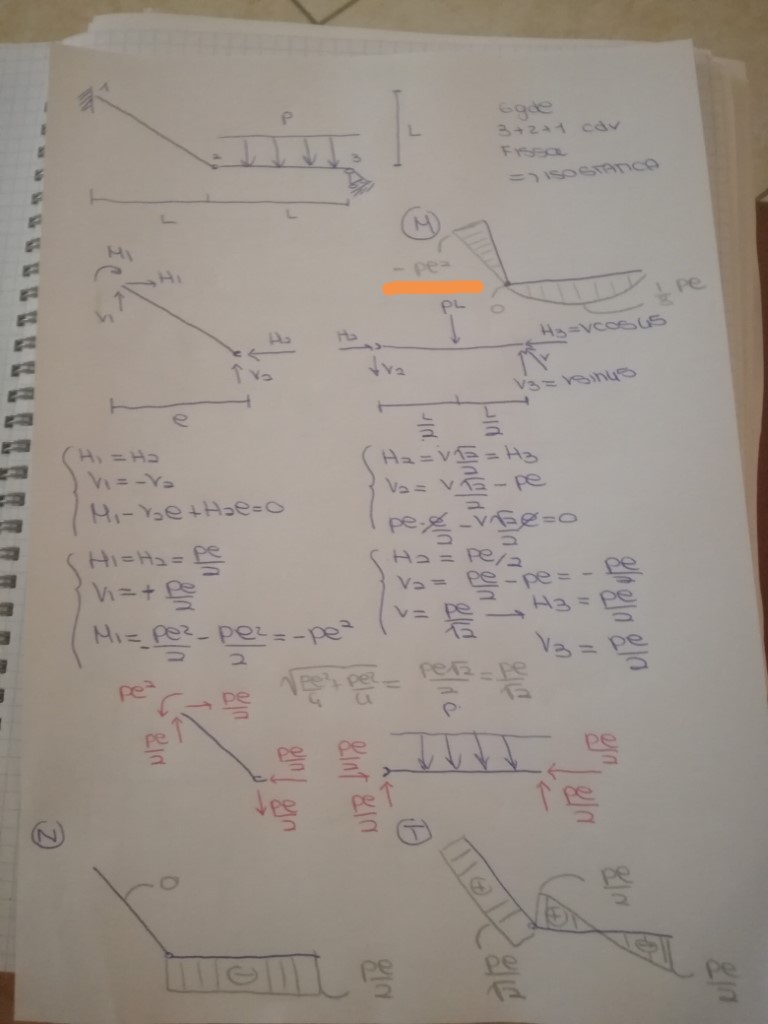 1
P
2
3
L
L
L
6gde
3+2+1 cdv
Fisse
=> ISOSTATICA
M
- pe²
0
1/8 pe
M₁
H₁
V₁
H₂
V₂
e
H₂
PL
V₂
H₃=Vcos45
V
V₃=Vsin45
L/2
L/2
H₁=H₂
V₁=-V₂
M₁-V₂e+H₂e=0
H₂=V√2/2=H₃
V₂=V√2/2-pe
pe·e/2-V√2/2e=0
H₁=H₂=pe/2
V₁=+pe/2
M₁=-pe²/2-pe²/2=-pe²
H₂=pe/2
V₂=pe/2-pe=-pe/2
V=pe/√2→H₃=pe/2
V₃=pe/2
√pe²/4+pe²/4=pe√2/2=pe/√2
pe²
pe/2
pe/2
pe/2
pe/2
P
pe/2
pe/2
pe/2
pe/2
N
0
-
pe/2
T
+
pe/√2
+
pe/2
pe/2